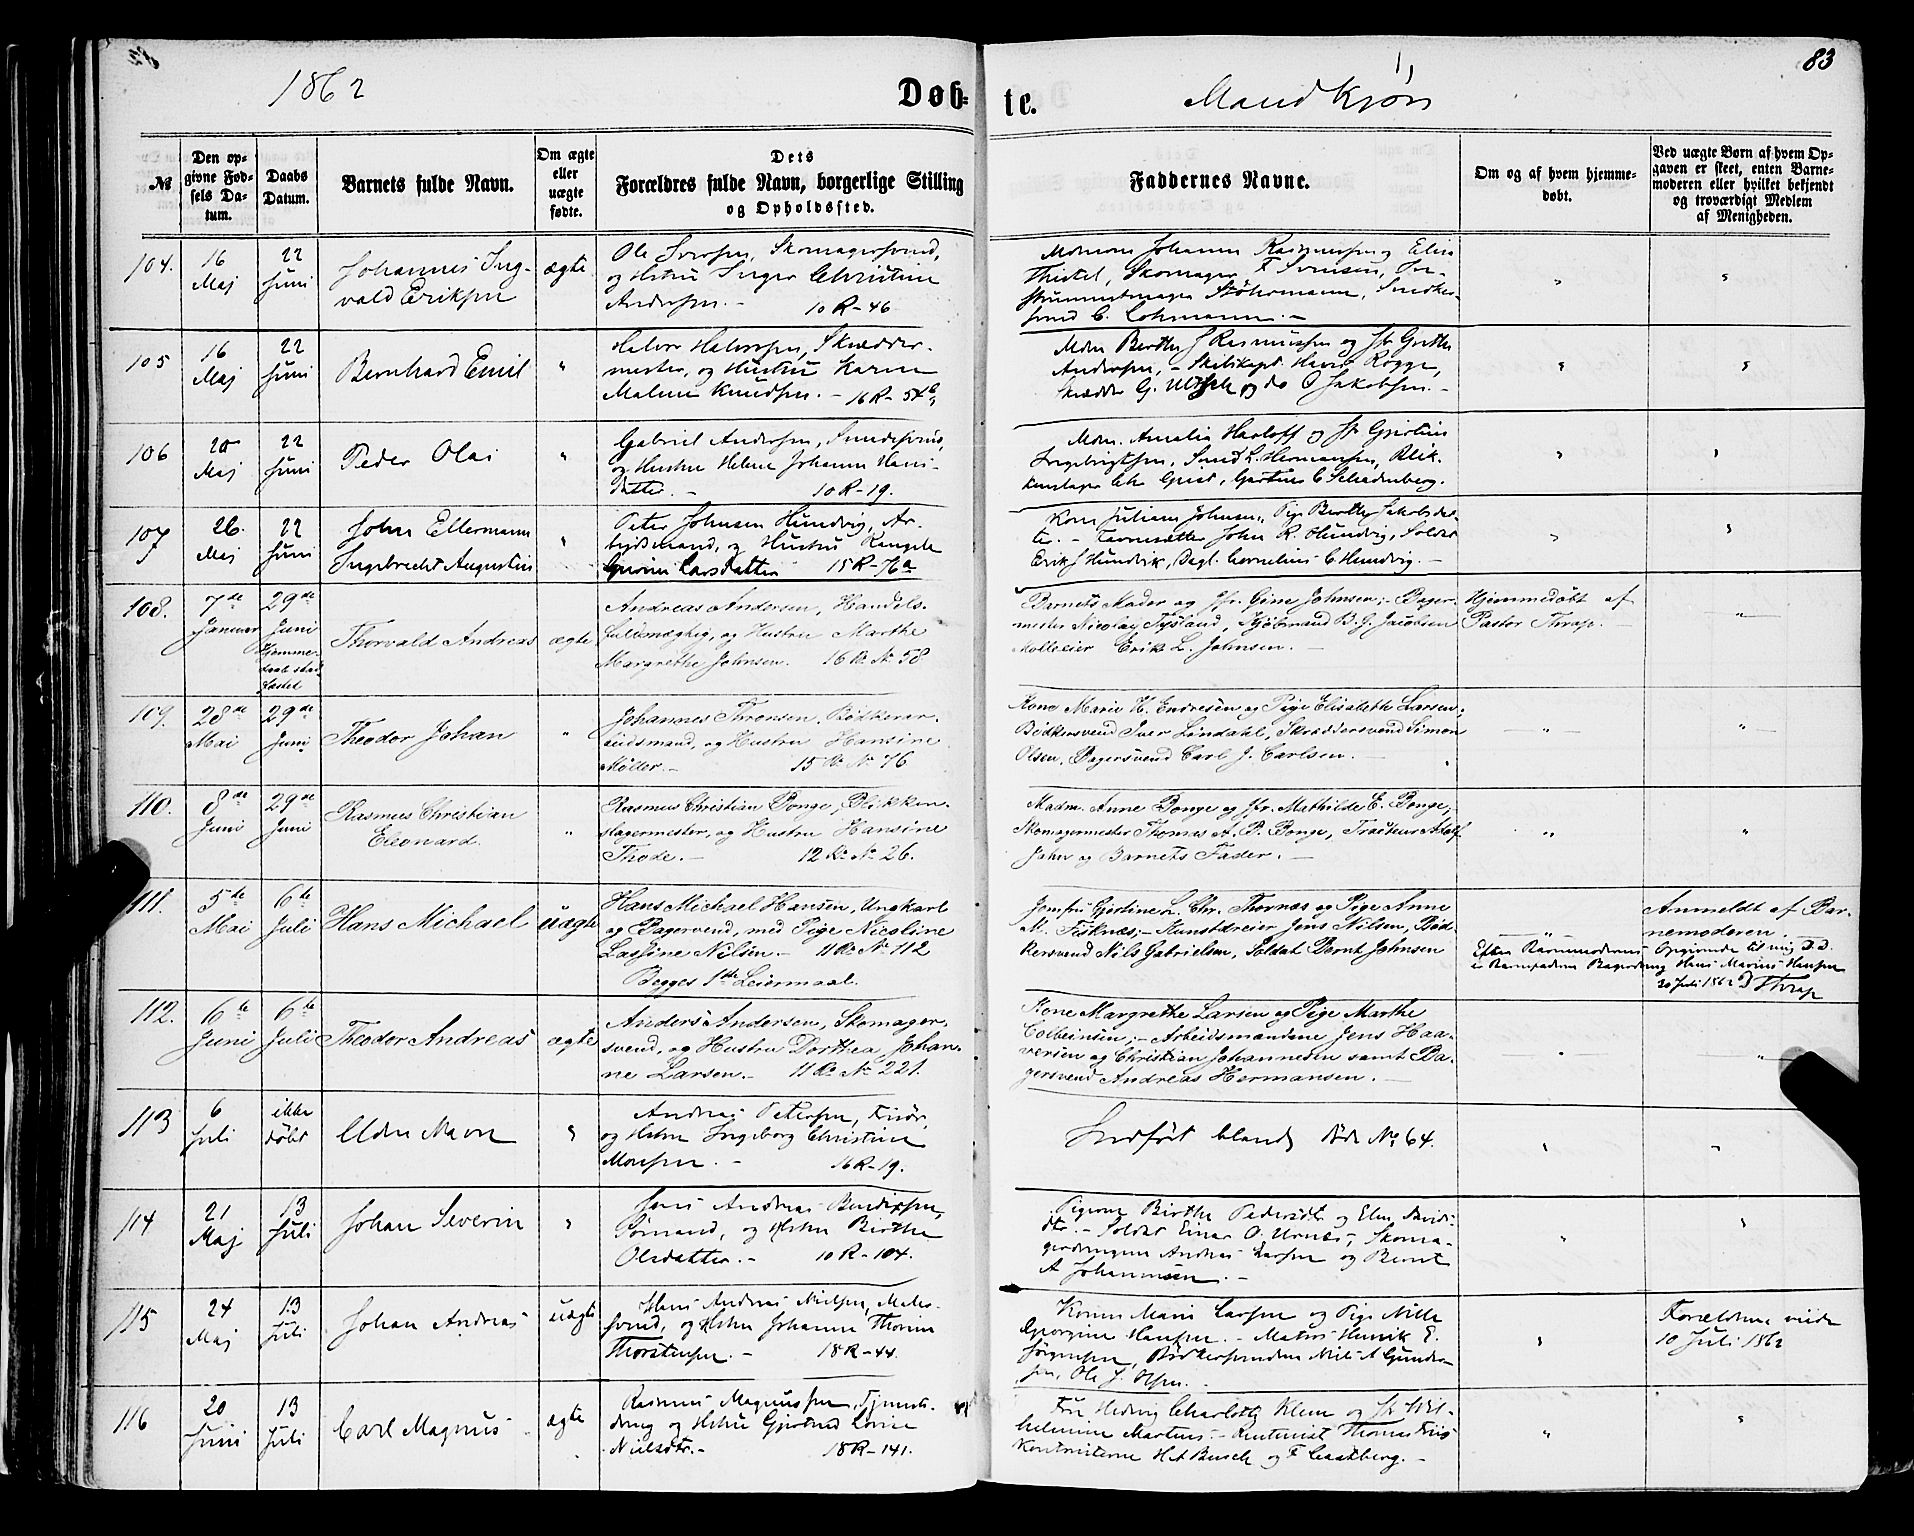 82
1862
Døb-
te.
Mandkjøn
83
№
Den op-
givne Fød-
sels Da-
tum.
Daabs
Datum.
Barnets fulde Navn.
Om ægte
eller
uægte
fødte.
Dets
Forældres fulde Navn, borgerlige Stilling
og Opholdssted.
Faddernes Navne.
Om og af hvem hjemme-
døbt.
Ved uægte Børn af hvem Op-
gaven er skeet, enten Barne-
moderen eller hvilket bekjendt
og troværdigt Medlem
af Menigheden.
104.
16
Maj
22
Juni
Johannes Ing-
vald Eriksen
ægte
Ole Skomagersvend,
og Hstru Inger Christine
Andersen. -
10 R - 46
Johanne Rasmussen og Elise
Skomager F.
Stöhrmann,
C. Lohmann. -
105
16
Maj
22
Juni
Bernhard Emil
"
Halvor Halvorsen, Skrædder-
mester, og Hustru Karen
Malene Knudsen. - 16 R - 54a
Mdm Berthe J Rasmussen og Jfr Grethe
Andersen, - Skibskapt. Hans Rogge,
Skrædder G. og do O Jakobsen. -
106
20
Maj
22
Juni
Peder Olai
"
Gabriel Andersen, Smedesvend,
og Hustru Helene Johanne Hans-
datter. -
10 R - 19.
Mdm. Amalia Harloff og Jfr Gjertine
Ingebrigtsen, Smed L. Hermansen, Blik-
kenslager Chr Gjert, Gartner C Schadenberg.
107
26.
Maj
22
Juni
John Ellermann
Ingebrecht Augustin
"
Peter Johnsen Hundvig, Ar-
bejdsmand, og Hustru
Gurine Larsdatter
15 R - 76a
Kone Juliane Johnsen, Pige Berthe Jakobsdat-
ter. - John R. Hundvig, Soldat
Erik J Hundvik, Dagl. Cornelius C Hundvig. -
108.
7de
Januar
29de
Juni
Hjemme-
daab stad-
fæstet
Thorvald Andreas
ægte
Andreas Andersen, Handels-
fuldmægtig, og Hustru Marthe
Margrethe Johnsen. 16 R. № 58
Barnets Moder og Jfr. Gine Johnsen; - Bager-
mester Nicolay Tysland, Kjöbmand B. G. Jacobsen
Mølleeier Erik L. Johnsen. -
Hjemmedöbt af
Pastor Thrap. -
109.
28de
Mai
29de
Juni
Theodor Johan
"
Johannes Thronsen, Bödkerar-
beidsmand, og Hustru Hansine
Möller. -
15 R. № 76
Kone Marie H. Endresen og Pige Elisabeth Larsen;
Bödkersvend Iver Lindahl, Skræddersvend Simon
Olsen, Bagersvend Carl J. Carlsen. -
110.
8de
Juni
29de
Juni
Rasmus Christian
Eleonard.
"
Rasmus Christian Ponge, Blikken-
slagermester, og Hustru Hansine
Thode. -
12 R. № 26.
Madm. Anne Ponge og Jfr. Mathilde E. Ponge;
Skomagermester Thomas A. P. Ponge, Adolf
Jahn og Barnets Fader. -
111.
5te
Mai
6te
Juli
Hans Michael
uægte
Hans Michael Hansen, Ungkarl
og Bagersvend, med Pige Nicoline
Lassine Nilsen. - 11 R. № 112
Begges 1ste Leiermaal.
Jomfru Gjertine L. Chr. Thornæs og Pige Anne
M. Fisknæs; - Kunstdreier Jens Nilsen, Böd-
kersvend Nils Gabrielsen, Soldat Bernt Johnsen
Anmeldt af Bar-
nemoderen.
Efter Barnemoderens Opgivende til mig D. D.
er Barnefaderen Bagersvend Hans Marius Hansen
30 Juli 1862 D Thrap
112.
6te
Juni
6te
Juli
Theodor Andreas
ægte
Anders Andersen, Skomager-
svend, og Hustru Dorthea Johan-
ne Larsen. - 11 R. № 221.
Kone Margrethe Larsen og Pige Marthe
Colbeinsen; - Arbeidsmændene Jens Haa-
versen og Christian Johannesen samt Ba-
gersvend Andreas Hermansen. -
113
6
Juli
ikke
døbt
Uden Navn
"
Andreas Petersen, Frisør,
og Hstru Ingeborg Christine
Monsen. -
16 R - 19.
Indført blandt døde № 64.
114
21
Maj
13
Juli
Johan Severin
"
Jens Andreas Bendixsen,
Sømand, og Hstru Birthe
Olsdatter. -
10 R - 104.
Pigerne Birthe Pedersdtr og Elen Davids-
dtr. - Soldat Einar O. Urnæs, Skoma-
gerdrengene Andreas Larsen og Bernt
A Johannesen. -
115
24
Maj
13
Juli
Johan Andreas
uægte
Hans Andreas Nielsen, Maler-
svend, og Hstru Johanne Thorine
Thorstensen. -
18 R - 44.
Konen Marie Larsen og Pige Nille
Georgine Hansen. - Matros Henrik E.
Jørgensen, Bødkersvendene Nils A Gunder-
sen, Ole J. Olsen. -
Forældrene viede
10 Juli 1862
116
20
Juni
13
Juli
Carl Magnus
ægte
Rasmus Magnussen, Tjeneste-
dreng og Hstru Gjertrud Lovise
Nielsdtr. -
18 R - 141.
Fru Hedvig Charlotte Klem og Jfr Wil-
helmine Martens. - Rentenist Thomas Friis
Kontoristerne H. A Busch og F Gaatzberg. -